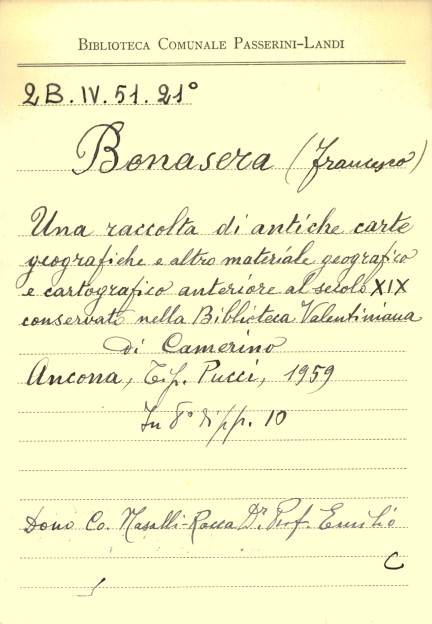 BIBLIOTECA COMUNALE PASSERINI-LANDI
2B. IV. 51. 21°
Bonasera (Francesco)
Una raccolta di antiche carte
geografiche e altro materiale geografico
e cartografico anteriore al secolo XIX
conservato nella Biblioteca Valentiniana
di Camerino
Ancona, Tip. Pucci, 1959
In 8° di pp. 10
Dono Co. Nasalli-Rocca Dr. Prof. Emilio
C